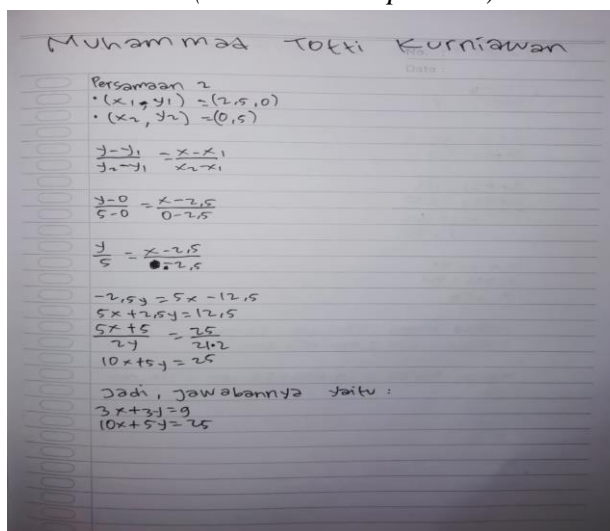 Muhammad Totti Kurniawan
No.
Date :
Persamaan 2
• (x1, y1) = (2,5,0)
• (x2, y2) = (0,5)
y-y1 / y2-y1 = x-x1 / x2-x1
y-0 / 5-0 = x-2,5 / 0-2,5
y / 5 = x-2,5 / -2,5
-2,5y = 5x - 12,5
5x + 2,5y = 12,5
5x + 5 / 2y = 25 / 21•2
10x + 5y = 25
Jadi, jawabannya yaitu :
3x + 3y = 9
10x + 5y = 25